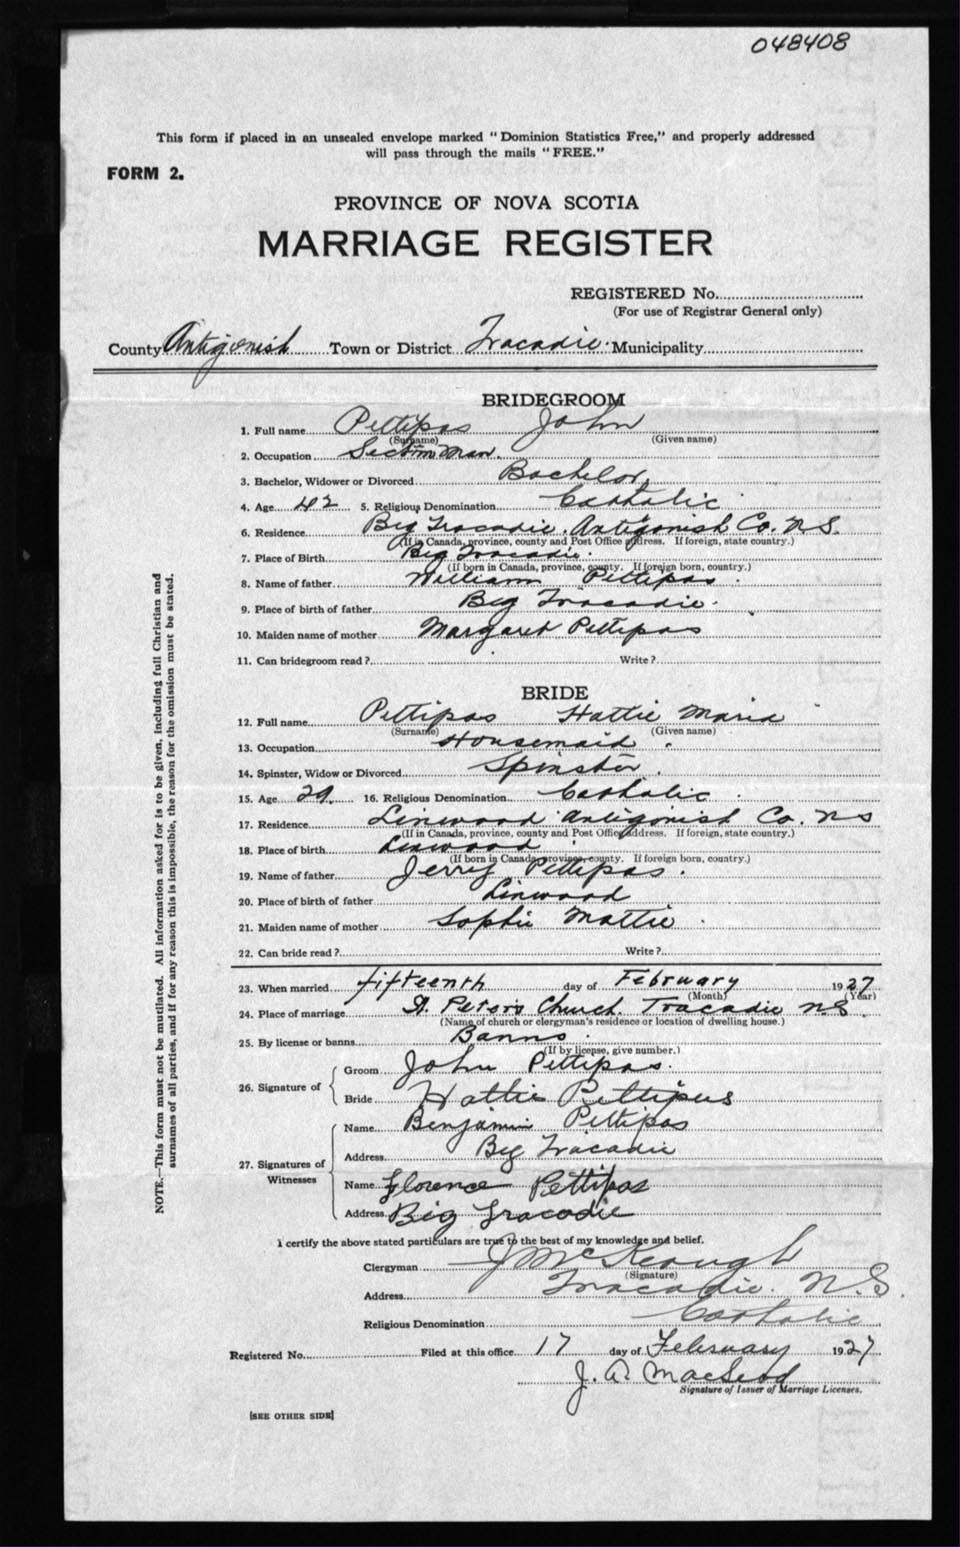 048408
This form if placed in an unsealed envelope marked "Dominion Statistics Free," and properly addressed
will pass through the mails "FREE."
FORM 2.
PROVINCE OF NOVA SCOTIA
MARRIAGE REGISTER
REGISTERED No.
(For use of Registrar General only)
County Antigonish Town or District Tracadie. Municipality
BRIDEGROOM
1. Full name Pettipas John
(Surname) (Given name)
2. Occupation Section Man.
3. Bachelor, Widower or Divorced Bachelor.
4. Age 42 5. Religious Denomination Catholic
6. Residence Big Tracadie Antigonish Co. N.S.
(If in Canada, province, county and Post Office address. If foreign, state country.)
7. Place of Birth Big Tracadie.
(If born in Canada, province, county. If foreign born, country.)
8. Name of father William Pettipas.
9. Place of birth of father Big Tracadie.
10. Maiden name of mother Margaret Pettipas
11. Can bridegroom read? Write?
BRIDE
12. Full name Pettipas Hattie Maria
(Surname) (Given name)
13. Occupation Housemaid.
14. Spinster, Widow or Divorced Spinster.
15. Age 29. 16. Religious Denomination Catholic
17. Residence Linwood Antigonish Co. N S
(If in Canada, province, county and Post Office address. If foreign, state country.)
18. Place of birth Linwood
(If born in Canada, province, county. If foreign born, country.)
19. Name of father Jerry Pettipas.
20. Place of birth of father Linwood
21. Maiden name of mother Sophie Mattie.
22. Can bride read? Write?
23. When married fifteenth day of February 1927
(Month) (Year)
24. Place of marriage St. Peter's Church. Tracadie N.S.
(Name of church or clergyman's residence or location of dwelling house.)
25. By license or banns Banns.
(If by license, give number.)
26. Signature of
Groom John Pettipas.
Bride Hattie Pettipas
27. Signatures of Witnesses
Name Benjamin Pettipas
Address Big Tracadie
Name Florence Pettipas
Address Big Tracadie
I certify the above stated particulars are true to the best of my knowledge and belief.
Clergyman J McKeough
(Signature)
Address Tracadie. N.S.
Religious Denomination Catholic
Registered No. Filed at this office 17 day of February 1927
J. A. MacLeod
Signature of Issuer of Marriage Licenses.
[SEE OTHER SIDE]
NOTE.—This form must not be mutilated. All information asked for is to be given, including full Christian and
surnames of all parties, and if for any reason this is impossible, the reason for the omission must be stated.